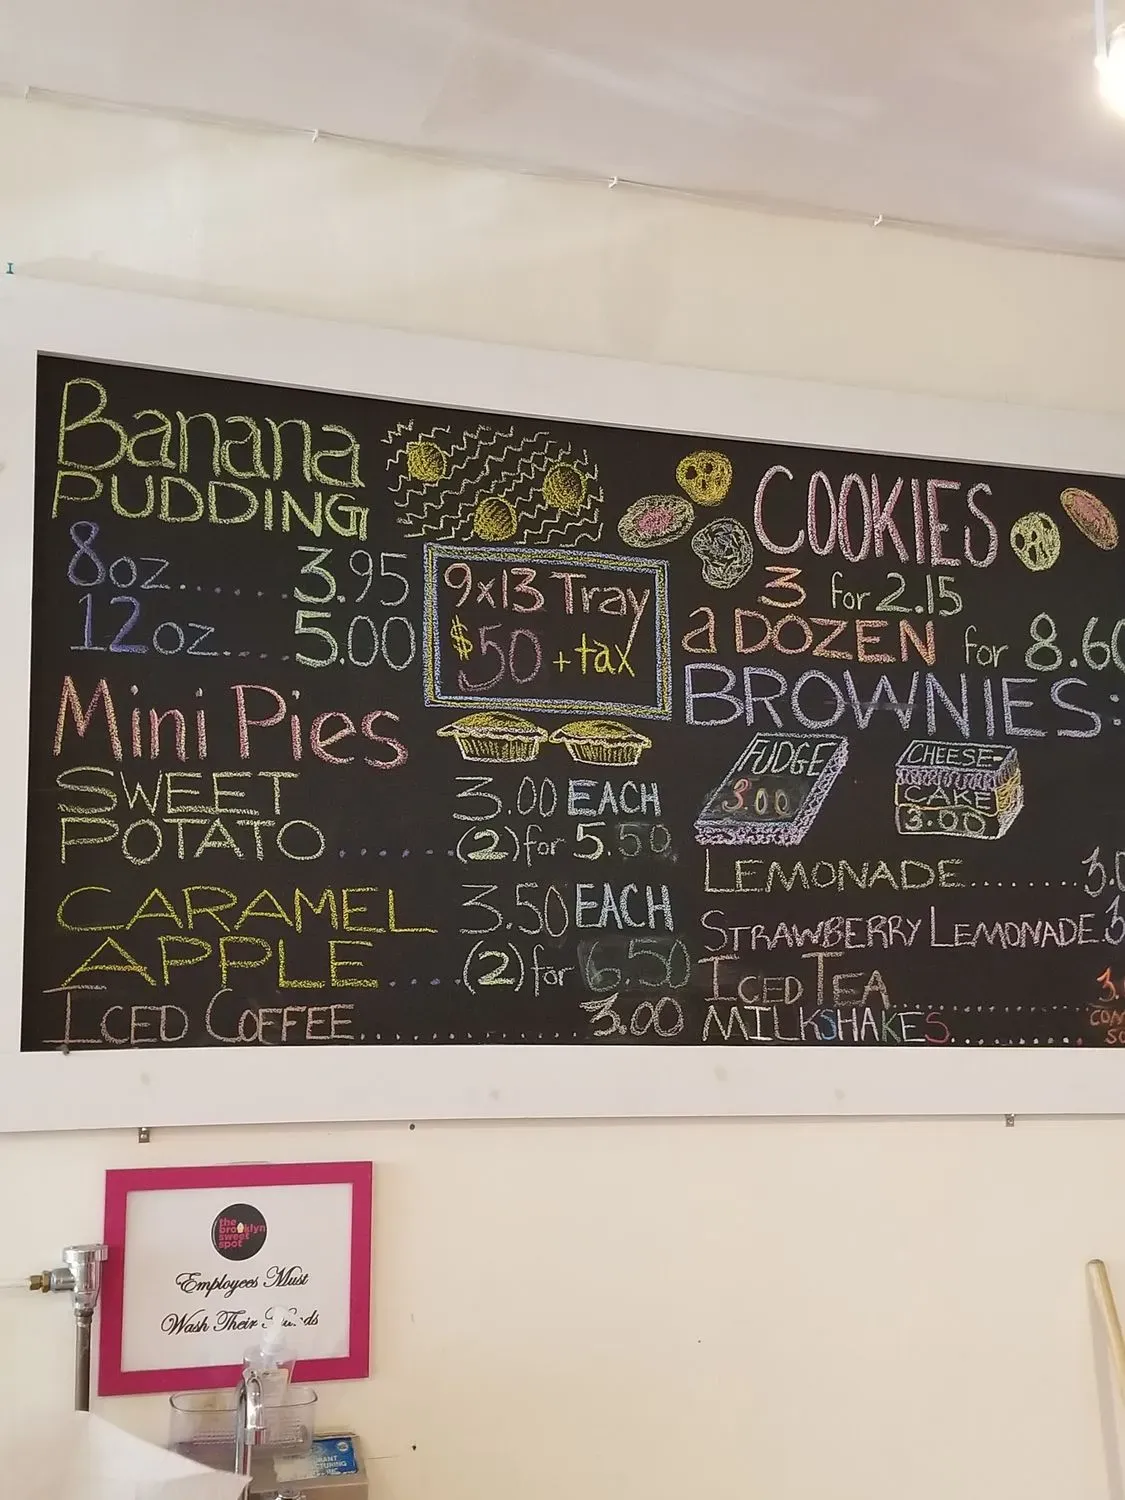 Banana
PUDDING
8oz.......3.95
12oz.....5.00
9x13 Tray
$50 + tax
Mini Pies
SWEET
POTATO......
3.00 EACH
(2) for 5.50
CARAMEL
APPLE.....
3.50 EACH
(2) for 6.50
ICED COFFEE................3.00
COOKIES
3 for 2.15
a DOZEN for 8.60
BROWNIES:
FUDGE
3.00
CHEESE-
CAKE
3.00
LEMONADE........3.
STRAWBERRY LEMONADE.3
ICED TEA..............3.
MILKSHAKES.........
the
brooklyn
sweet
spot
Employees Must
Wash Their Hands